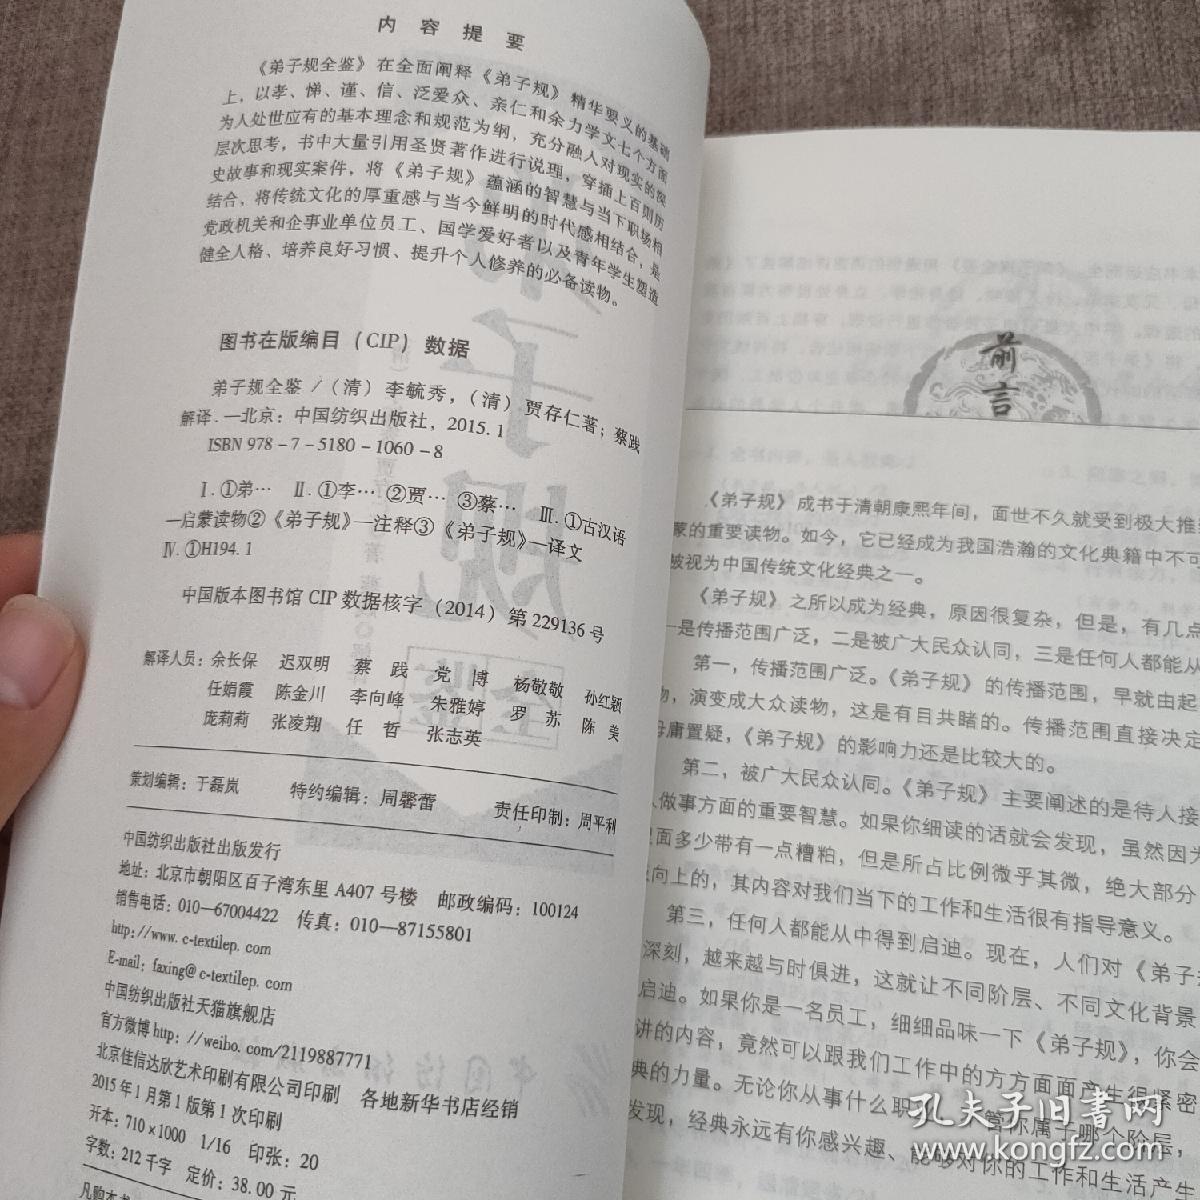 内容提要
《弟子规全鉴》在全面阐释《弟子规》精华要义的基础
上，以孝、悌、谨、信、泛爱众、亲仁和余力学文七个方面
为人处世应有的基本理念和规范为纲，充分融入对现实的深
层次思考，书中大量引用圣贤著作进行说理，穿插上百则历
史故事和现实案件，将《弟子规》蕴涵的智慧与当下职场相
结合，将传统文化的厚重感与当今鲜明的时代感相结合，是
党政机关和企事业单位员工、国学爱好者以及青年学生塑造
健全人格、培养良好习惯、提升个人修养的必备读物。
图书在版编目（CIP）数据
弟子规全鉴／（清）李毓秀，（清）贾存仁著；蔡践
解译.—北京：中国纺织出版社，2015.1
ISBN 978-7-5180-1060-8
Ⅰ.①弟… Ⅱ.①李…②贾…③蔡… Ⅲ.①古汉语
—启蒙读物②《弟子规》—注释③《弟子规》—译文
Ⅳ.①H194.1
中国版本图书馆CIP数据核字（2014）第229136号
解译人员：余长保 迟双明 蔡践 党博 杨敬敬 孙红颖
任娟霞 陈金川 李向峰 朱雅婷 罗苏 陈美
庞莉莉 张凌翔 任哲 张志英
策划编辑：于磊岚 特约编辑：周馨蕾 责任印制：周平利
中国纺织出版社出版发行
地址：北京市朝阳区百子湾东里A407号楼 邮政编码：100124
销售电话：010—67004422 传真：010—87155801
http://www.c-textilep.com
E-mail：faxing@c-textilep.com
中国纺织出版社天猫旗舰店
官方微博http：//weibo.com/2119887771
北京佳信达欣艺术印刷有限公司印刷 各地新华书店经销
2015年1月第1版第1次印刷
开本：710×1000 1/16 印张：20
字数：212千字 定价：38.00元
凡购本书
前言
《弟子规》成书于清朝康熙年间，面世不久就受到极大推
蒙的重要读物。如今，它已经成为我国浩瀚的文化典籍中不可
被视为中国传统文化经典之一。
《弟子规》之所以成为经典，原因很复杂，但是，有几点
一是传播范围广泛，二是被广大民众认同，三是任何人都能从
第一，传播范围广泛。《弟子规》的传播范围，早就由起
物，演变成大众读物，这是有目共睹的。传播范围直接决定
毋庸置疑，《弟子规》的影响力还是比较大的。
第二，被广大民众认同。《弟子规》主要阐述的是待人接
人做事方面的重要智慧。如果你细读的话就会发现，虽然因为
里面多少带有一点糟粕，但是所占比例微乎其微，绝大部分
向上的，其内容对我们当下的工作和生活很有指导意义。
第三，任何人都能从中得到启迪。现在，人们对《弟子规
深刻，越来越与时俱进，这就让不同阶层、不同文化背景
启迪。如果你是一名员工，细细品味一下《弟子规》，你会
讲的内容，竟然可以跟我们工作中的方方面面产生很紧密
典的力量。无论你从事什么职业，不管你属于哪个阶层，
发现，经典永远有你感兴趣、能够对你的工作和生活产生
孔夫子旧书网
www.kongfz.com